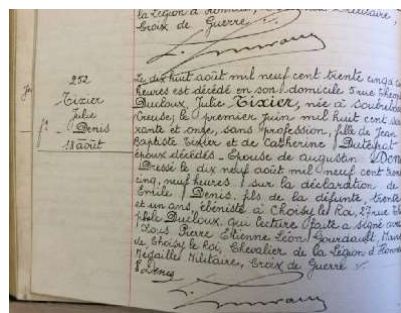 la Légion d'Honneur, Militaire,
Croix de Guerre.
252
Tixier
Julie
fe Denis
18 août
Le dix huit août mil neuf cent trente cinq,
heures est décédé en son domicile 5 rue Théop
Ducloux, Julie Tixier, née à
Creuse, le premier juin mil huit cent soi
xante et onze, sans profession, fille de Jean
Baptiste Tixier et de Catherine Dutepat
époux décédés - Epouse de augustin Den
Dressé le dix neuf août mil neuf cent tren
cinq, neuf heures, sur la déclaration de
Emile Denis, fils de la défunte, trente
et un ans, ébéniste à Choisy le Roi, 27 rue Th
phile Ducloux, qui lecture faite a signé avec
Louis Pierre Etienne Léon Gourdault, Maire
de Choisy le Roi, Chevalier de la Légion d'Honne
Médailles Militaire, Croix de Guerre
E Denis